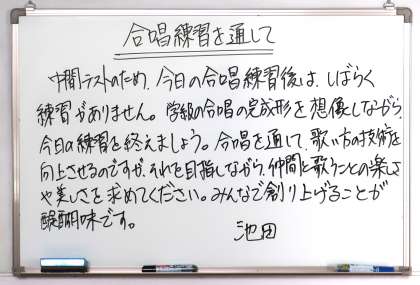 合唱練習を通して
中間テストのため、今日の合唱練習後は、しばらく
練習がありません。学級の合唱の完成形を想像しながら、
今日の練習を終えましょう。合唱を通して、歌い方の技術を
向上させるのですが、それを目指しながら、仲間と歌うことの楽しさ
や美しさを求めてください。みんなで創り上げることが
醍醐味です。
池田